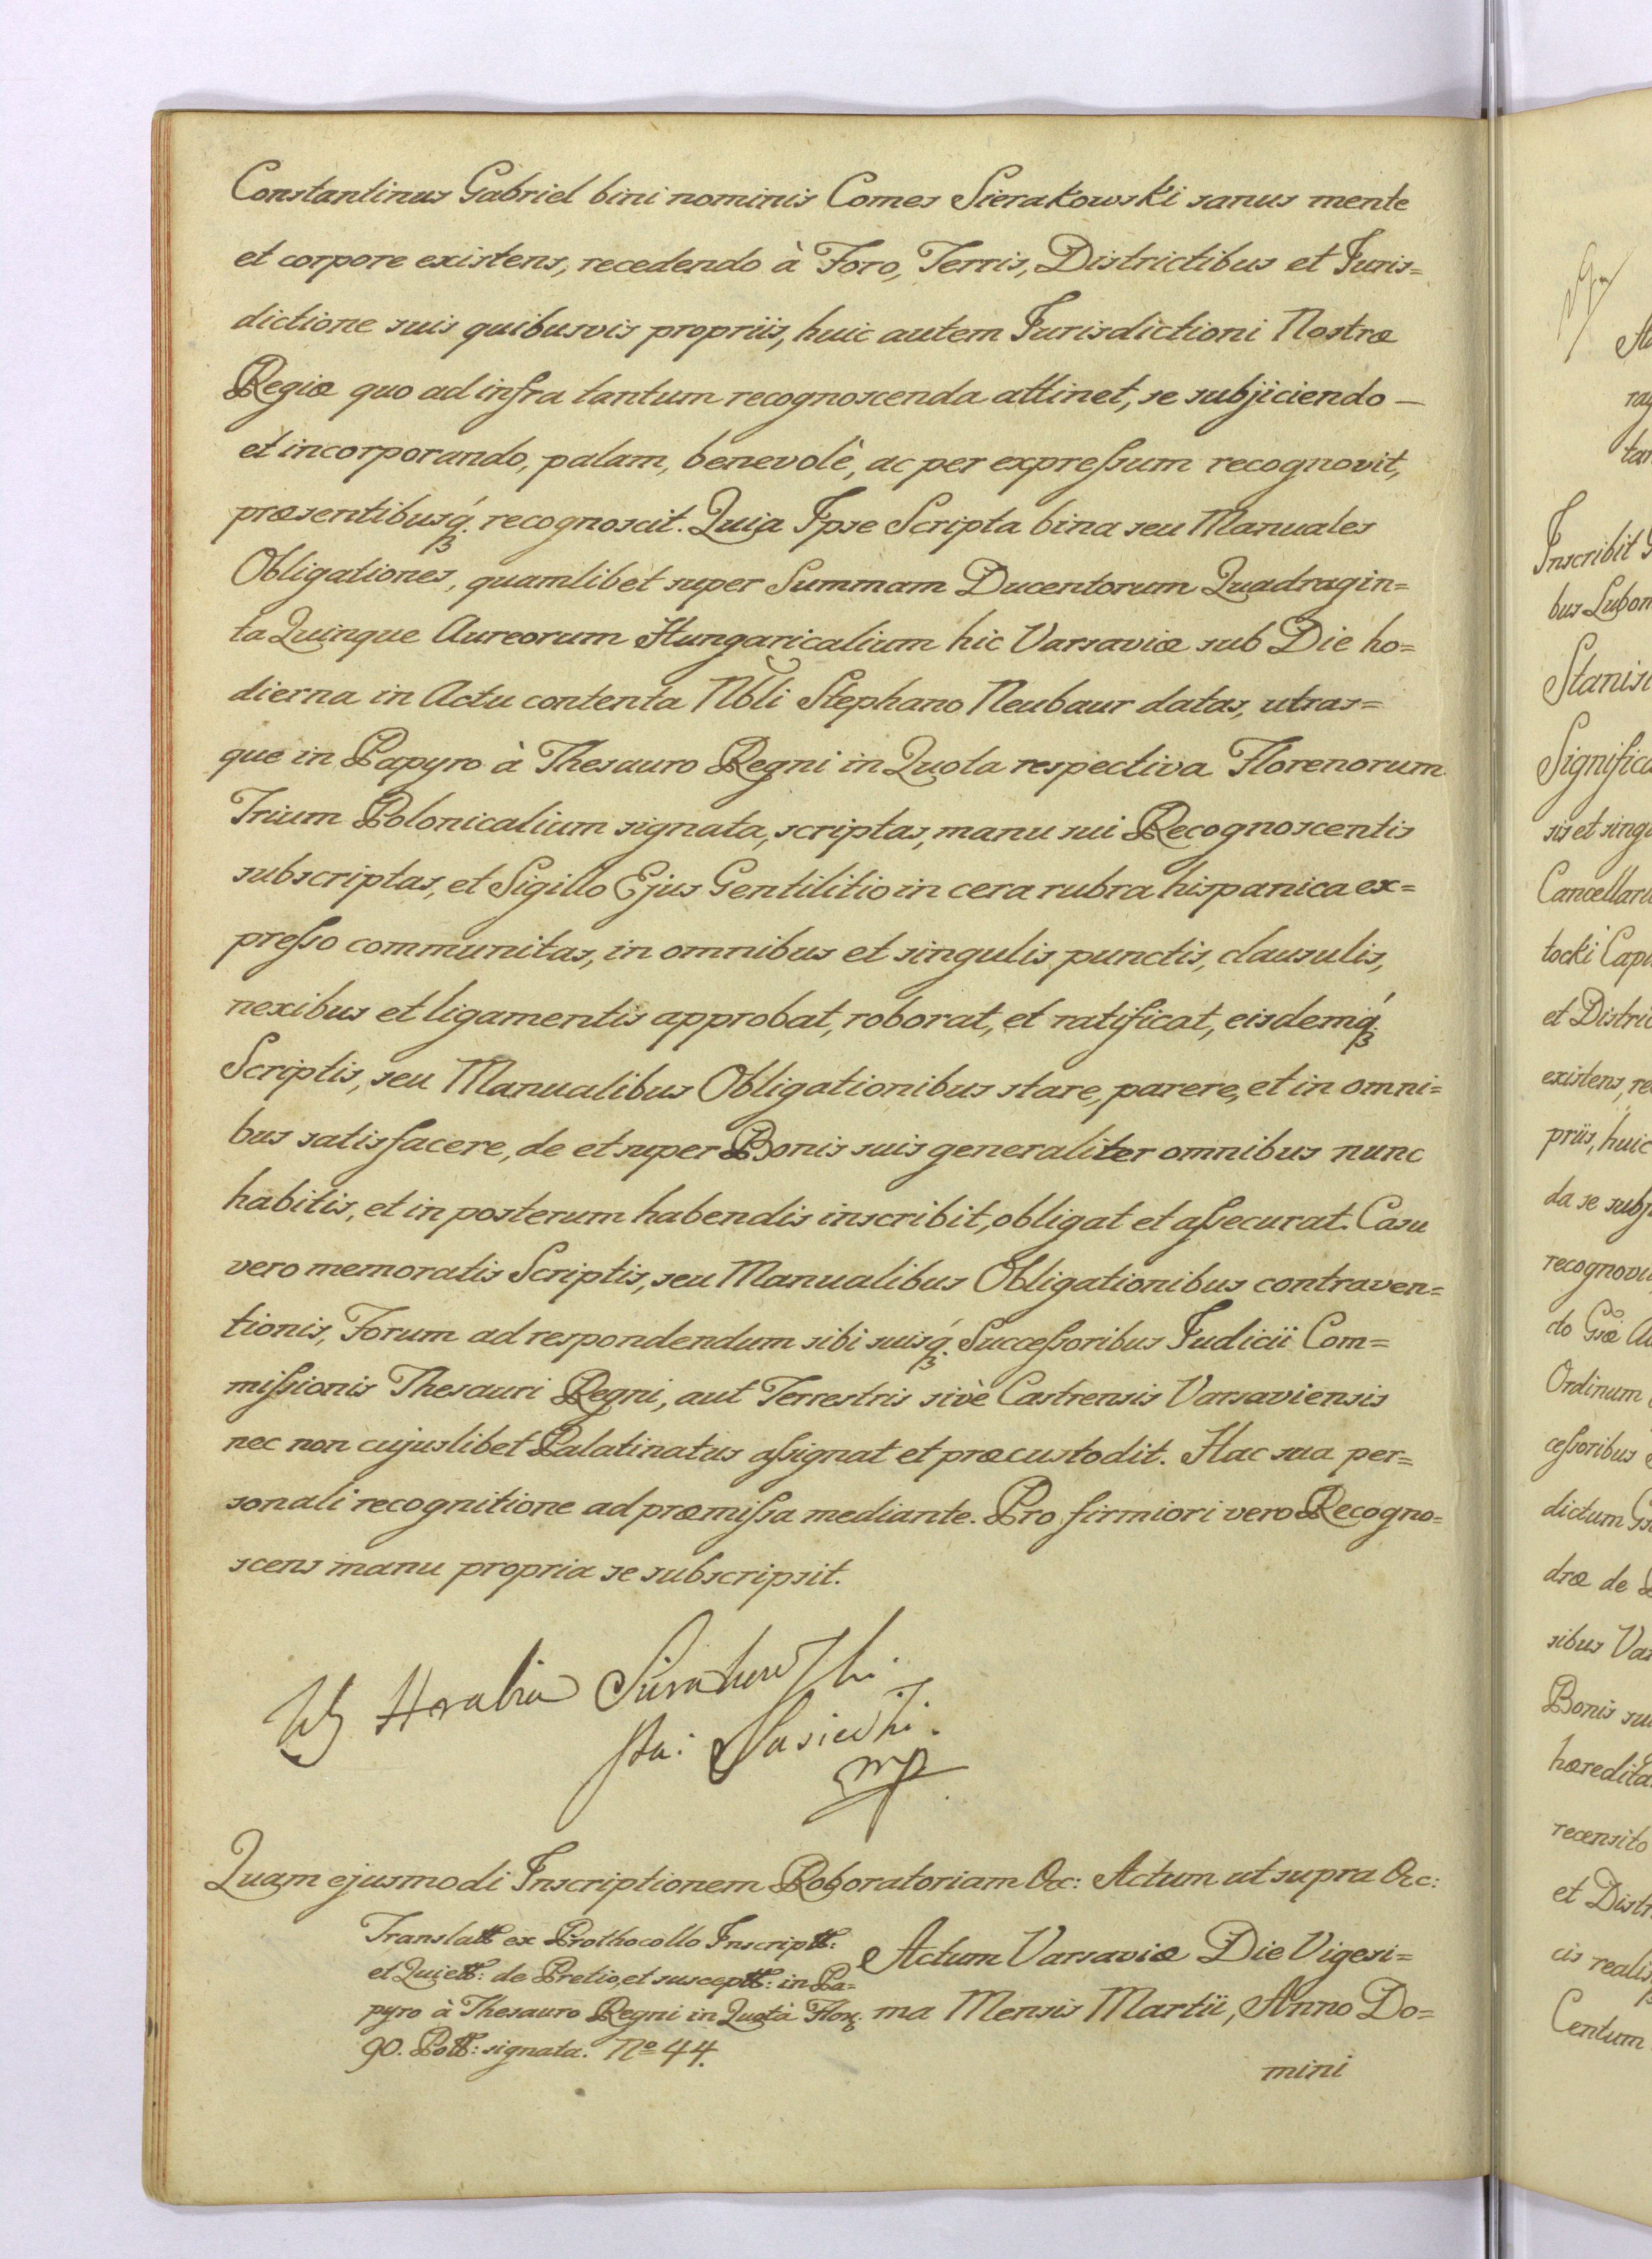 Constantinus Gabriel bini nominis Comes Sierakowski sanus mente
et corpore existens, recedendo à Foro, Terris, Districtibus et Juris=
dictione suis quibusvis propriis, huic autem Jurisdictioni Nostræ
Regiæ quo ad infra tantum recognoscenda attinet, se subjiciendo —
et incorporando, palam, benevolè, ac per expreſsum recognovit,
præsentibusq́ꝫ recognoscit. Quia Ipse Scripta bina seu Manuales
Obligationes, quamlibet super Summam Ducentorum Quadragin=
ta Quinque Aureorum Hungaricalium hic Varsaviæ sub Die ho=
dierna in Actu contenta Nbli Stephano Neubaur datas, utras=
que in Papyro à Thesauro Regni in Quota respectiva Florenorum
Trium Polonicalium signata, scriptas, manu sui Recognoscentis
subscriptas, et Sigillo Ejus Gentilitio in cera rubra hispanica ex=
preſso communitas, in omnibus et singulis punctis, clausulis,
nexibus et ligamentis approbat, roborat, et ratificat, eisdemq́ꝫ
Scriptis, seu Manualibus Obligationibus stare, parere, et in omni=
bus satisfacere, de et super Bonis suis generaliter omnibus nunc
habitis, et in posterum habendis inscribit, obligat et aſsecurat. Casu
vero memoratis Scriptis, seu Manualibus Obligationibus contraven=
tionis, Forum ad respondendum sibi suisq́ꝫ Succeſsoribus Judicii Com=
miſsionis Thesauri Regni, aut Terrestris sivè Castrensis Varsaviensis
nec non cujuslibet Palatinatus aſsignat et præcustodit. Hac sua per=
sonali recognitione ad præmiſsa mediante. Pro firmiori vero Recogno=
scens manu propria se subscripsit.
Hrabia Sierakowski
mp
Quam ejusmodi Inscriptionem Roboratoriam &c: Actum ut supra &c:
Translatt ex Prothocollo Inscriptt:
et Quiett: de Pretio, et susceptt: in Pa=
pyro à Thesauro Regni in Quotà Florꝫ
90. Poltt: signata. No 44.
Actum Varsaviæ Die Vigesi=
ma Mensis Martii, Anno Do=
mini
Inscribit
bus Lubom
Stanis
Significa
sis et sing
Cancellar
tocki Capi
et Distri
existens, re
priis, huic
da se subj
recognovi
do Gsæ
Ordinum
ceſsoribus
dictum
dræ de
sibus Va
Bonis su
hæredita
recensito
et Distr
cis realis
Centum